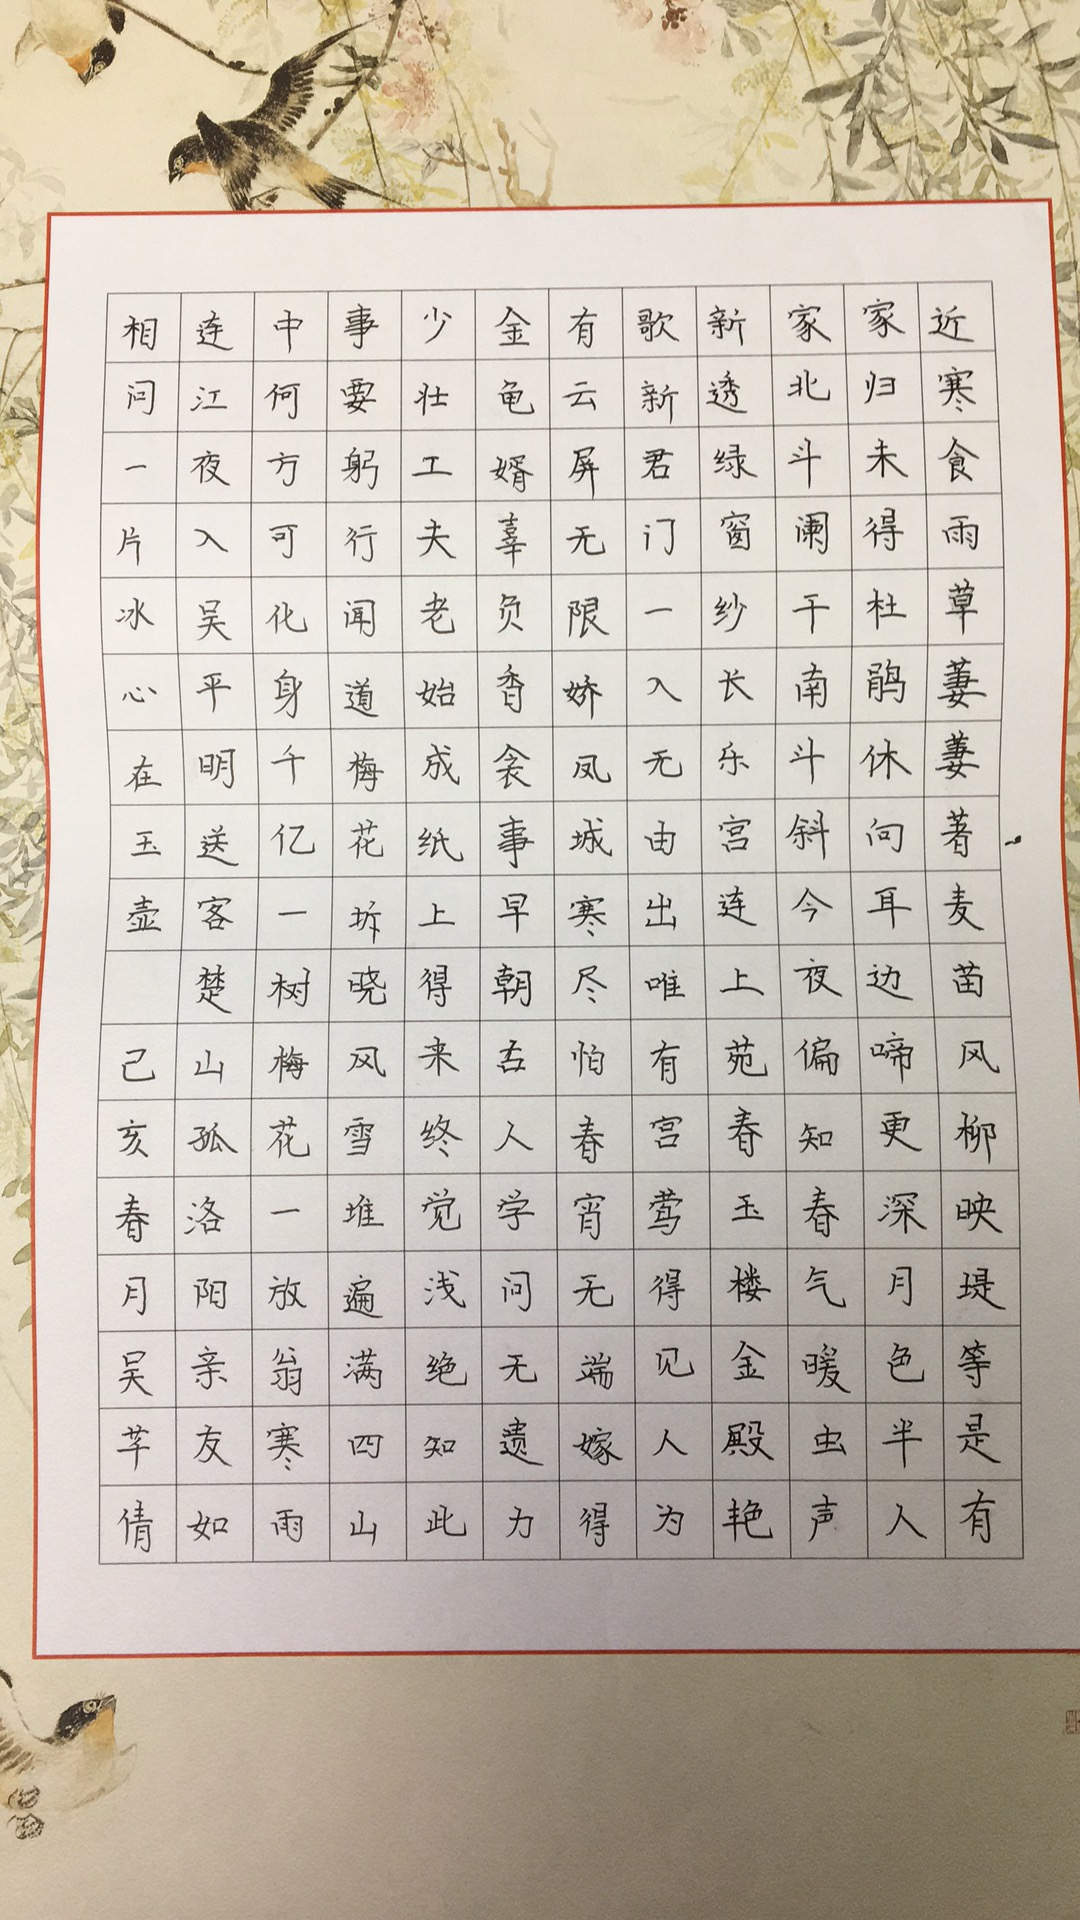 近寒食雨草萋萋著麦苗风柳映堤等是有
家归未得杜鹃休向耳边啼更深月色半人
家北斗阑干南斗斜今夜偏知春气暖虫声
新透绿窗纱长乐宫连上苑春玉楼金殿艳
歌新君门一入无由出唯有宫莺得见人为
有云屏无限娇凤城寒尽怕春宵无端嫁得
金龟婿辜负香衾事早朝古人学问无遗力
少壮工夫老始成纸上得来终觉浅绝知此
事要躬行闻道梅花坼晓风雪堆遍满四山
中何方可化身千亿一树梅花一放翁寒雨
连江夜入吴平明送客楚山孤洛阳亲友如
相问一片冰心在玉壶 己亥春月吴芊倩